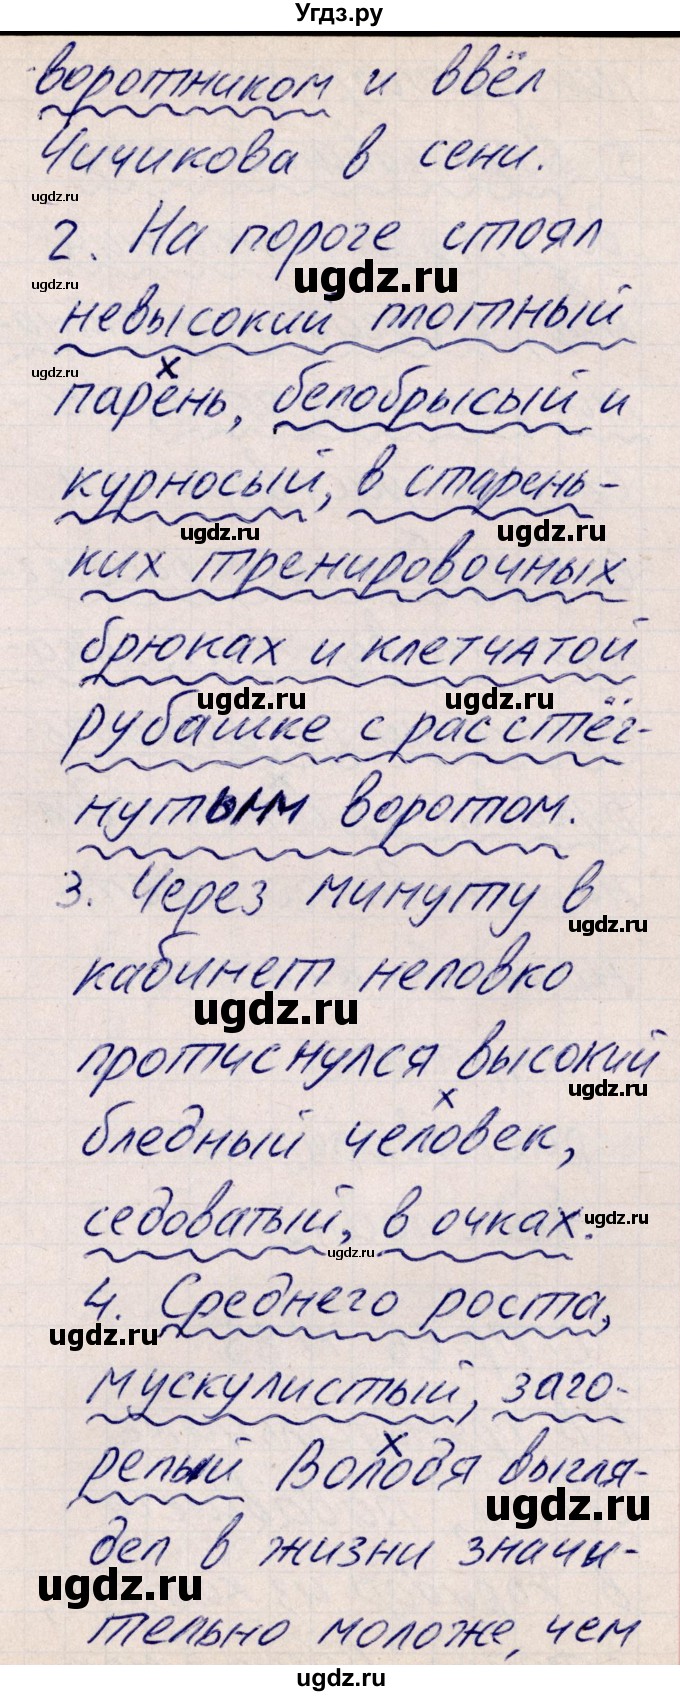 Угдз.ру
воротником и ввёл
Чичикова в сени.
ugdz.ru
2. На пороге стоял
ugdz.ru
ugdz.ru
невысокий плотный
ugdz.ru
парень, белобрысый и
курносый, в старень-
ugdz.ru
ugdz.ru
ких тренировочных
брюках и клетчатой
ugdz.ru
ugdz.ru
рубашке с расстёг-
нутым воротом.
3. Через минуту в
ugdz.ru
кабинет неловко
ugdz.ru
протиснулся высокий
ugdz.ru
х
бледный человек,
седоватый, в очках.
ugdz.ru
ugdz.ru
4. Среднего роста,
ugdz.ru
мускулистый, заго-
х
релый Володя выгля-
ugdz.ru
дел в жизни значи-
ugdz.ru
тельно моложе, чем
ugdz.ru